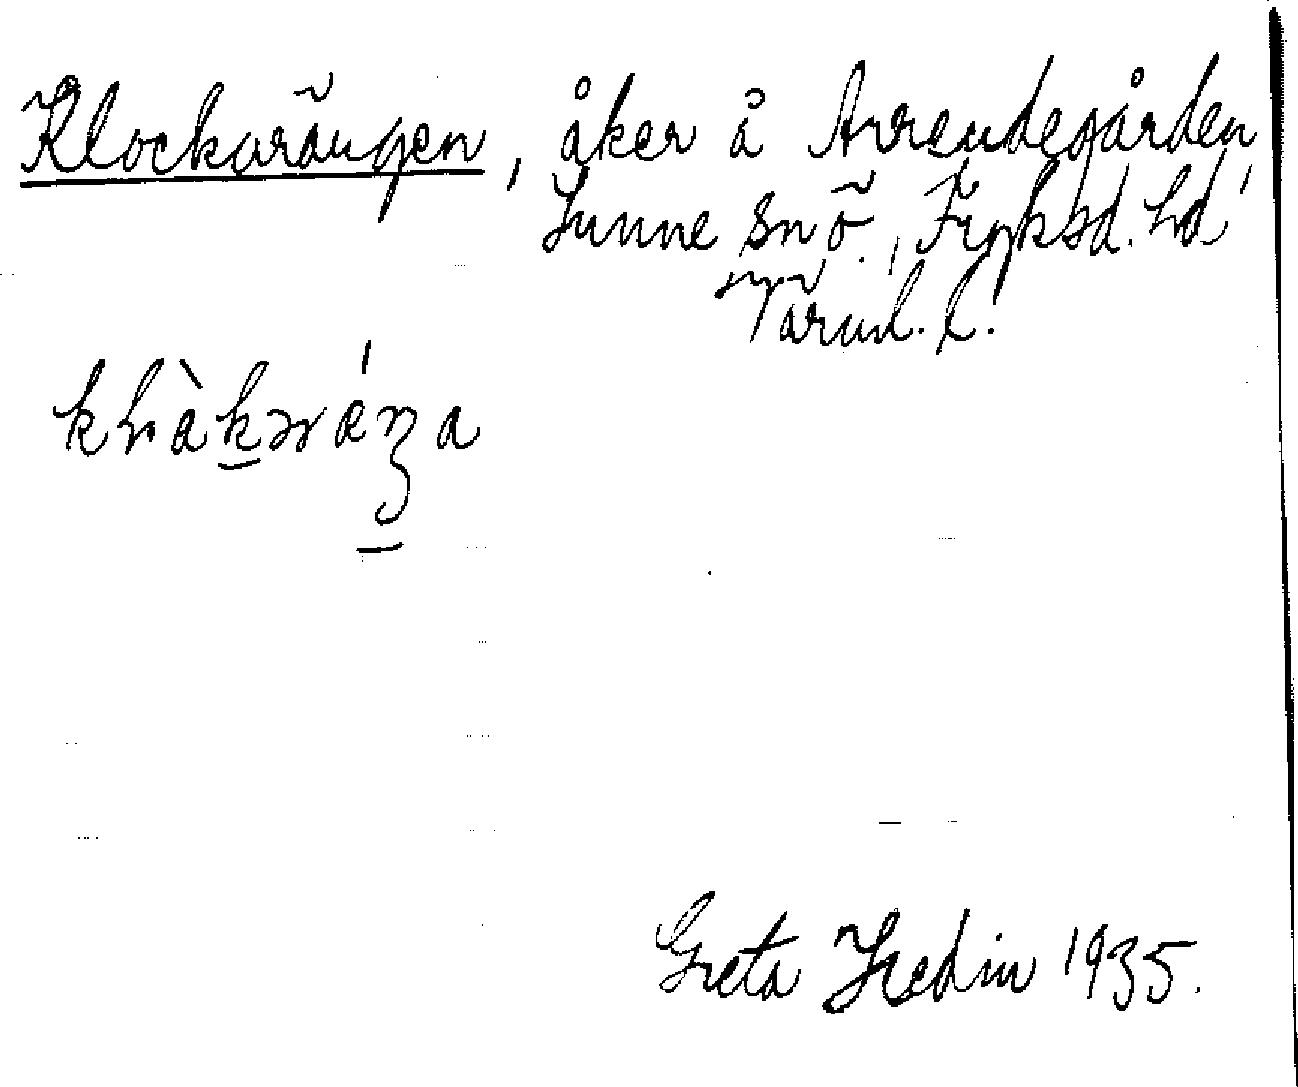 Klockarängen, åker å Arrendegården,
Sunne snö., Fryksd. hd,
Värml. l.
Greta Hedin 1935.